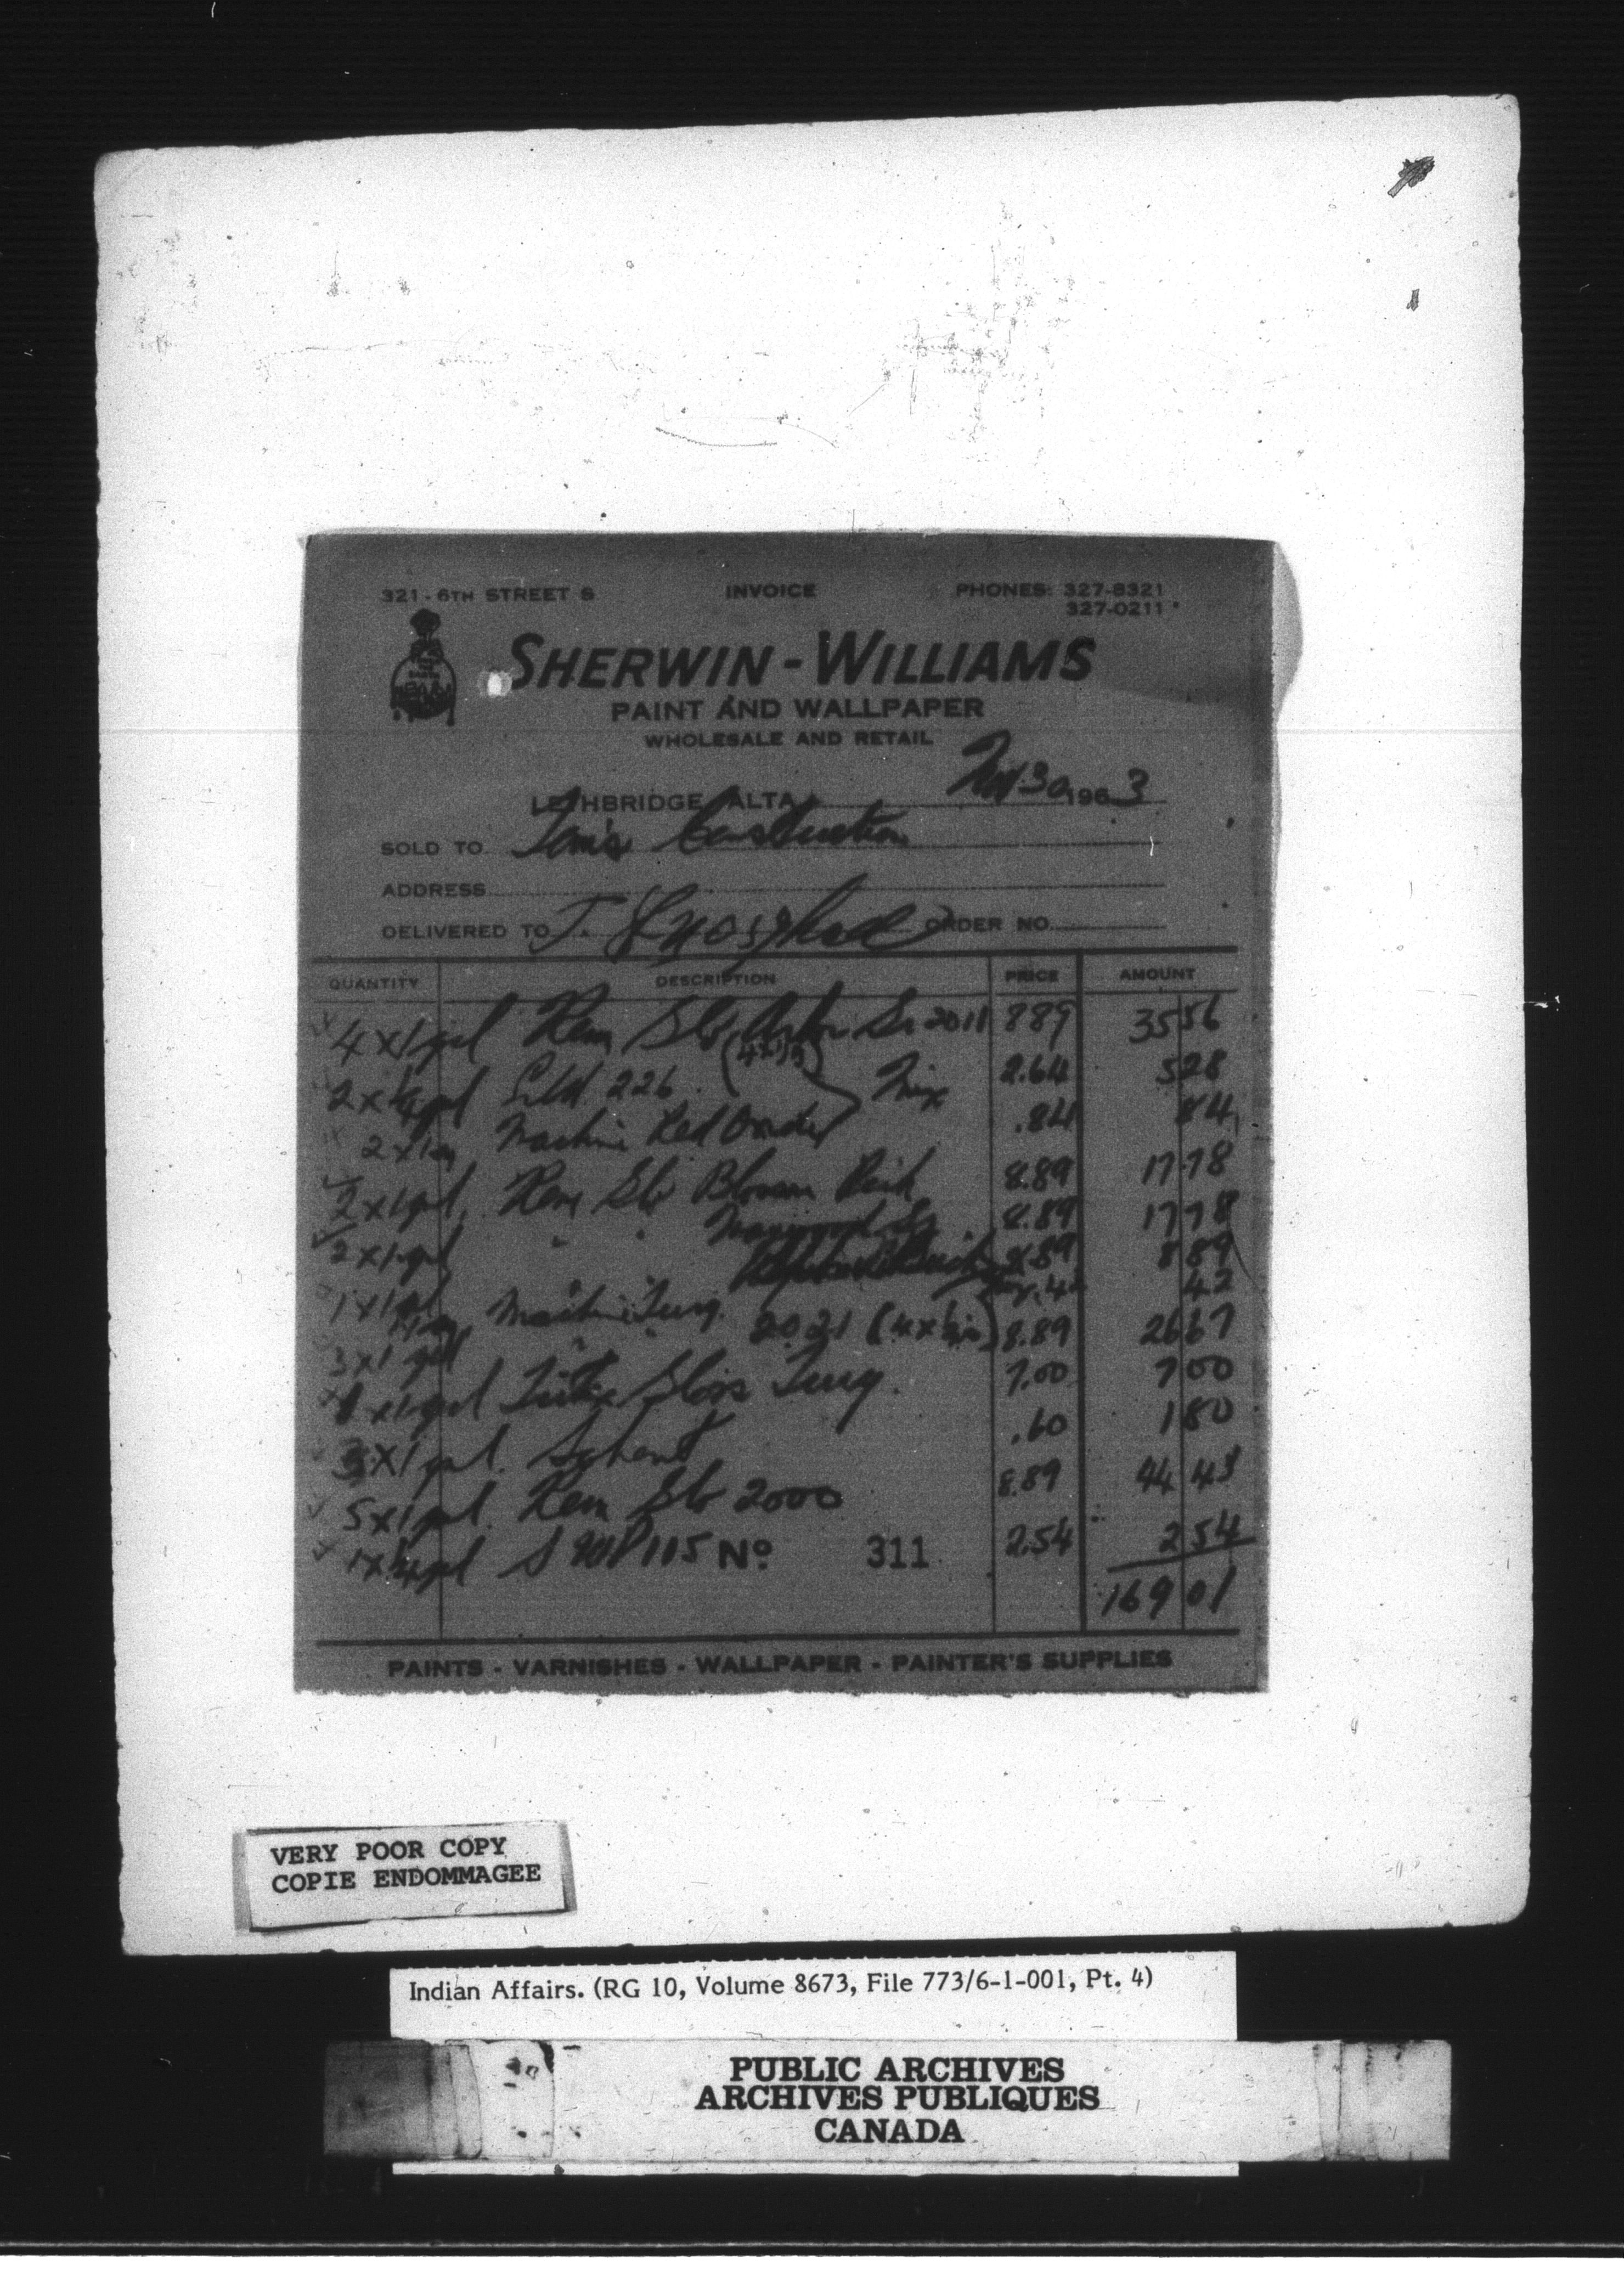 321 - 6TH STREET S INVOICE PHONES: 327-8321
327-0211
SHERWIN-WILLIAMS
PAINT AND WALLPAPER
WHOLESALE AND RETAIL
LETHBRIDGE, ALTA. 30 1963
SOLD TO Construction
ADDRESS
DELIVERED TO J. ORDER NO.
QUANTITY DESCRIPTION PRICE AMOUNT
4 x 1 gal Kem Glo 2011 889 35 56
2 x 1/4 gal 226 2.64 5 28
2 x Machine Red .84 84
2 x 1 gal. Kem Glo Blossom Pink 8.89 17 78
2 x 1 gal " " 8.89 17 78
1 x 1 gal 8.89 8 89
Machine .42 42
3 x 1 gal " " 2021 (4 x 8.89 26 67
1 x 1 gal Gloss 7.00 7 00
3 x 1 gal. Solvent .60 1 80
5 x 1 gal. Kem Glo 2000 8.89 44 45
1 x 1/4 gal SWP 115 No 311 2.54 2 54
169 01
PAINTS - VARNISHES - WALLPAPER - PAINTER'S SUPPLIES
VERY POOR COPY
COPIE ENDOMMAGEE
Indian Affairs. (RG 10, Volume 8673, File 773/6-1-001, Pt. 4)
PUBLIC ARCHIVES
ARCHIVES PUBLIQUES
CANADA